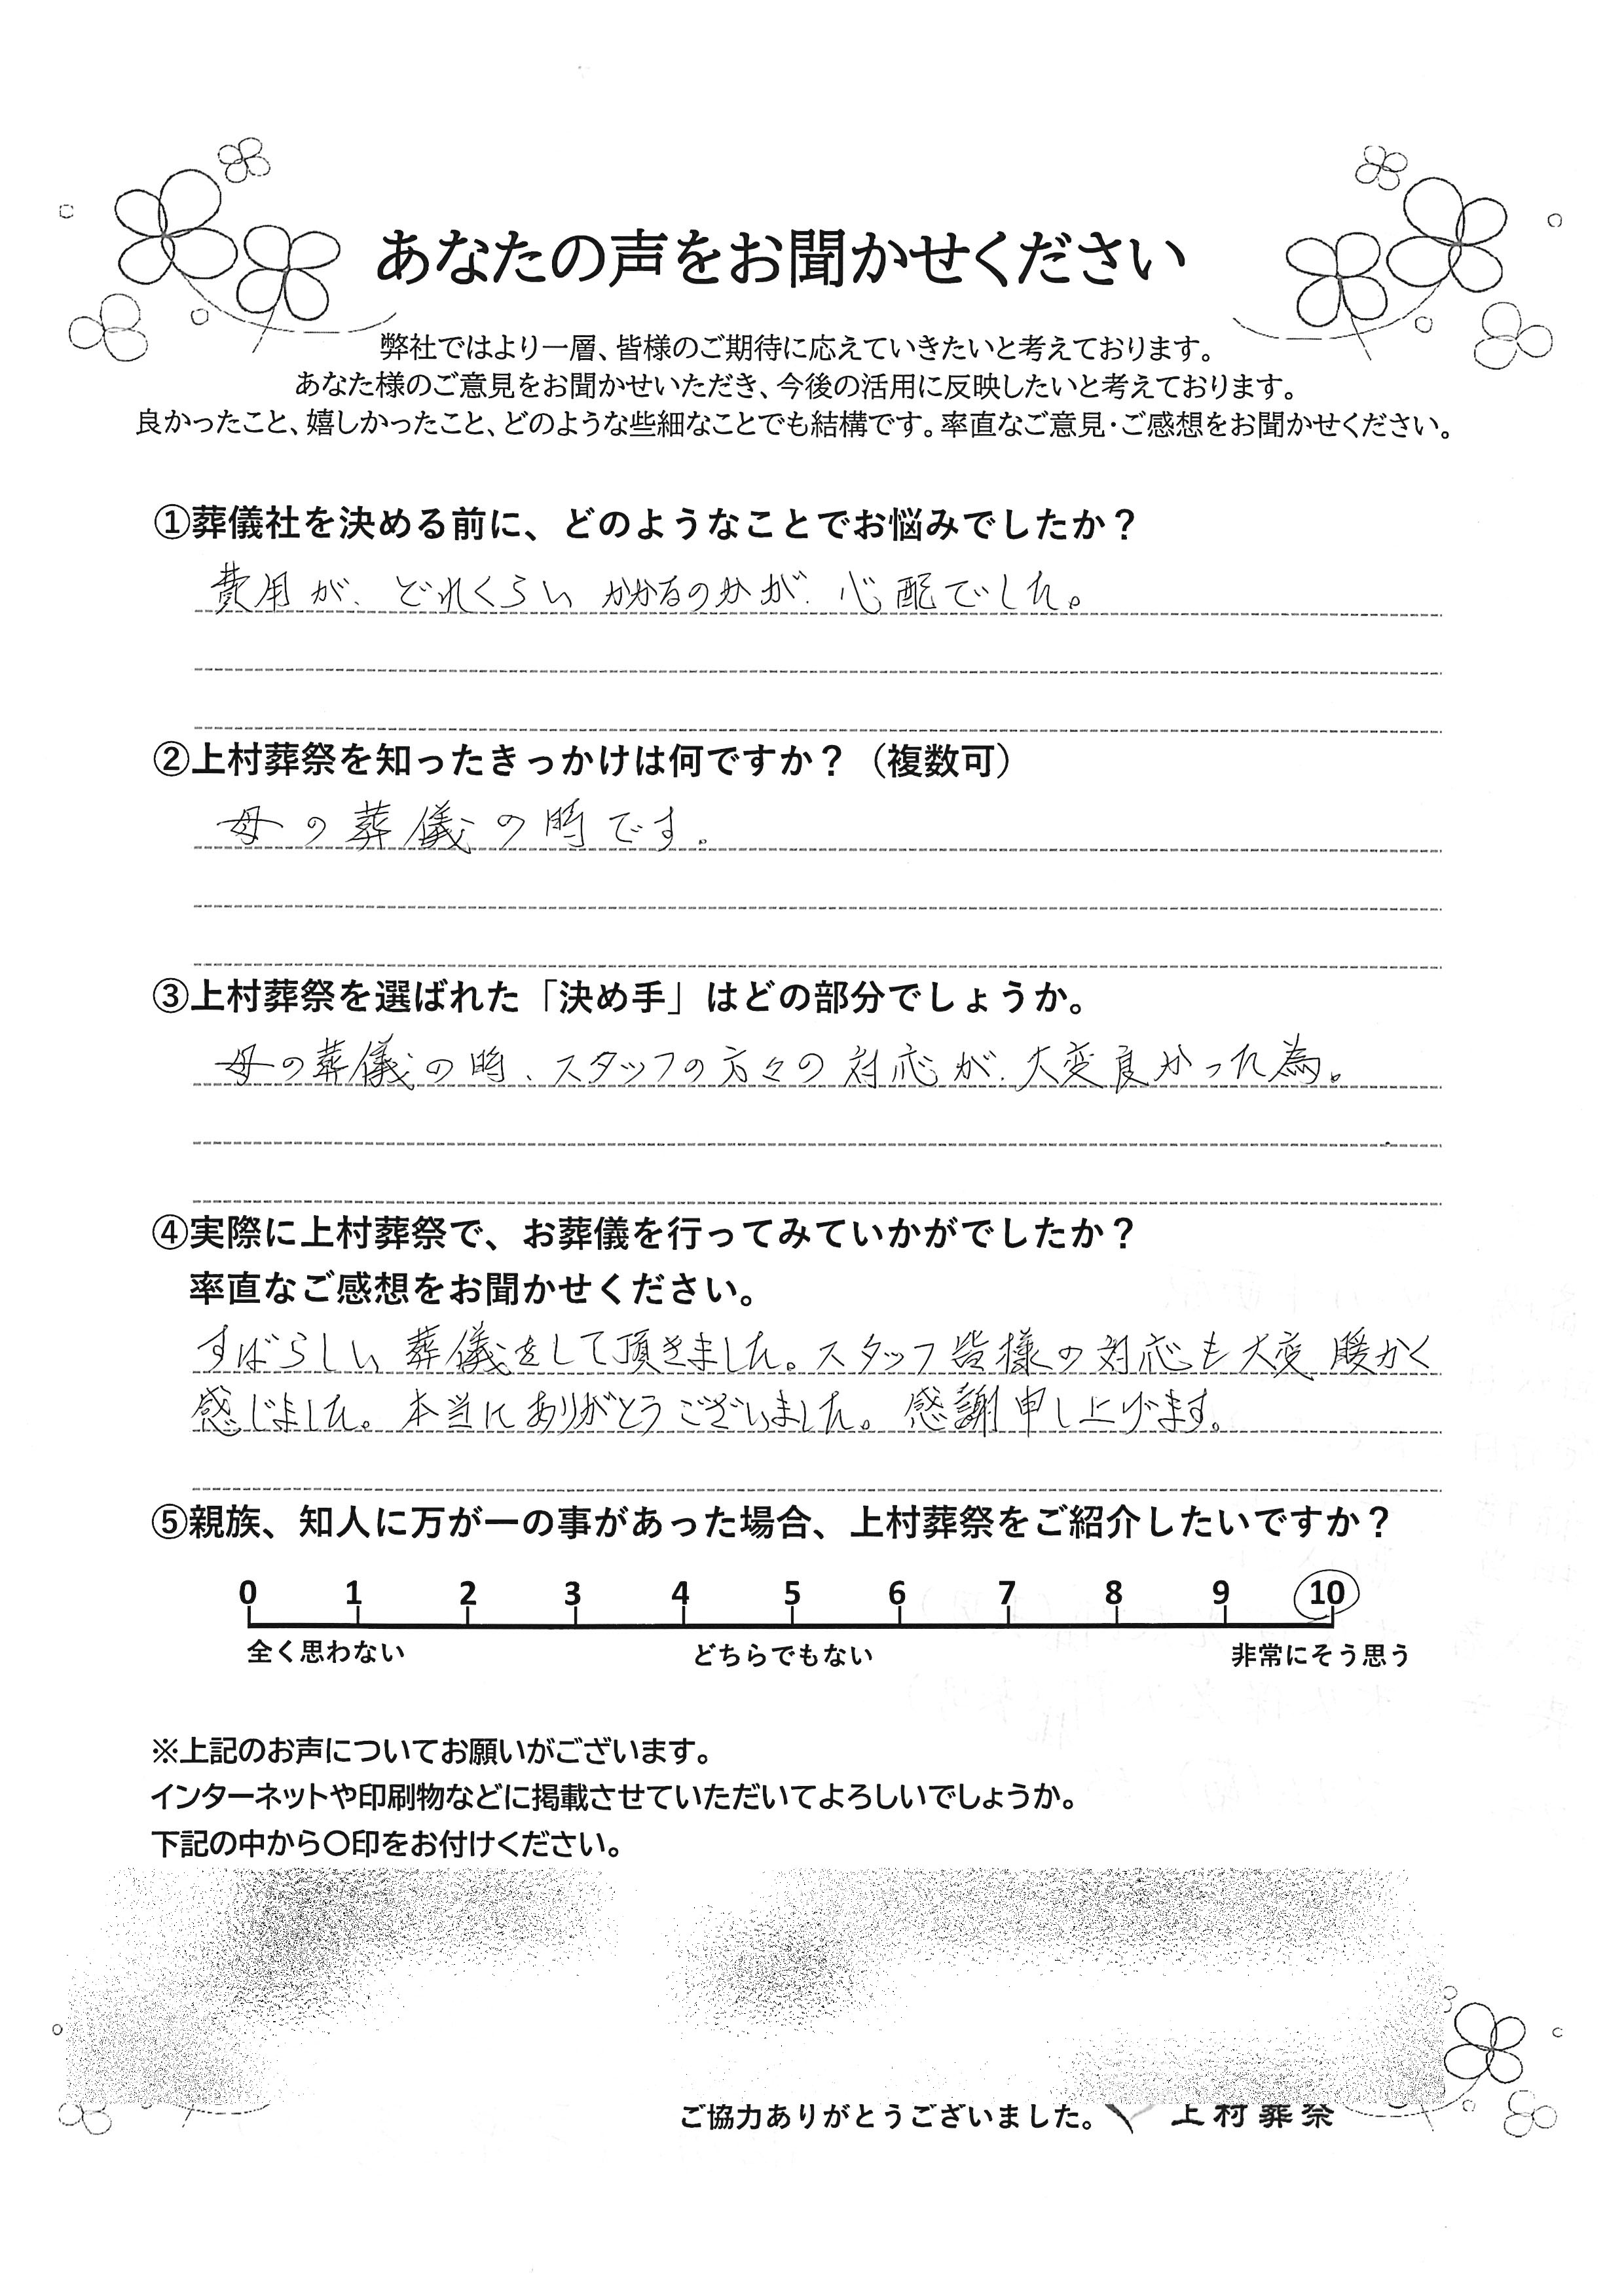 あなたの声をお聞かせください
弊社ではより一層、皆様のご期待に応えていきたいと考えております。
あなた様のご意見をお聞かせいただき、今後の活用に反映したいと考えております。
良かったこと、嬉しかったこと、どのような些細なことでも結構です。率直なご意見・ご感想をお聞かせください。
①葬儀社を決める前に、どのようなことでお悩みでしたか？
費用が、どれくらいかかるのかが、心配でした。
②上村葬祭を知ったきっかけは何ですか？（複数可）
母の葬儀の時です。
③上村葬祭を選ばれた「決め手」はどの部分でしょうか。
母の葬儀の時、スタッフの方々の対応が、大変良かった為。
④実際に上村葬祭で、お葬儀を行ってみていかがでしたか？
率直なご感想をお聞かせください。
すばらしい葬儀をして頂きました。スタッフ皆様の対応も大変暖かく
感じました。本当にありがとうございました。感謝申し上げます。
⑤親族、知人に万が一の事があった場合、上村葬祭をご紹介したいですか？
0 1 2 3 4 5 6 7 8 9 10
全く思わない どちらでもない 非常にそう思う
※上記のお声についてお願いがございます。
インターネットや印刷物などに掲載させていただいてよろしいでしょうか。
下記の中から〇印をお付けください。
ご協力ありがとうございました。 上村葬祭